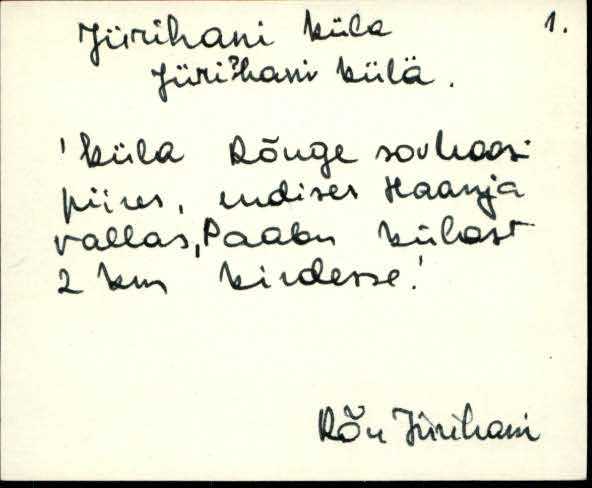 Jürihani küla 1.
Jüri?hani külä.
'küla Rõuge sovhoosi
piires, endises Haanja
vallas, Paabu külast
2 km kirdesse.'
Rõu Jürihani